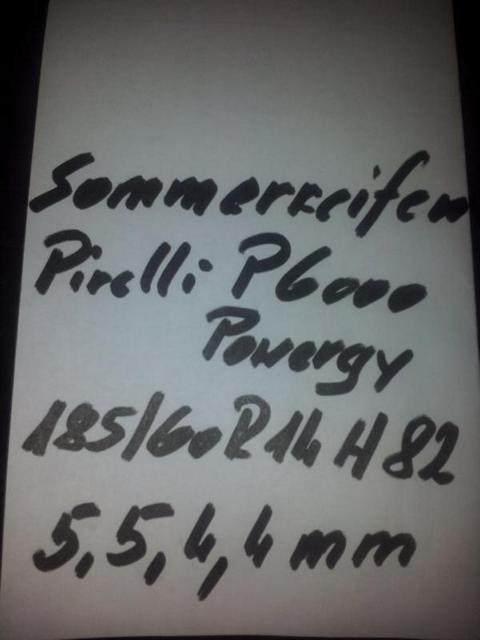 Sommerreifen
Pirelli P6000
Powergy
185/60R14 H82
5,5,4,4 mm